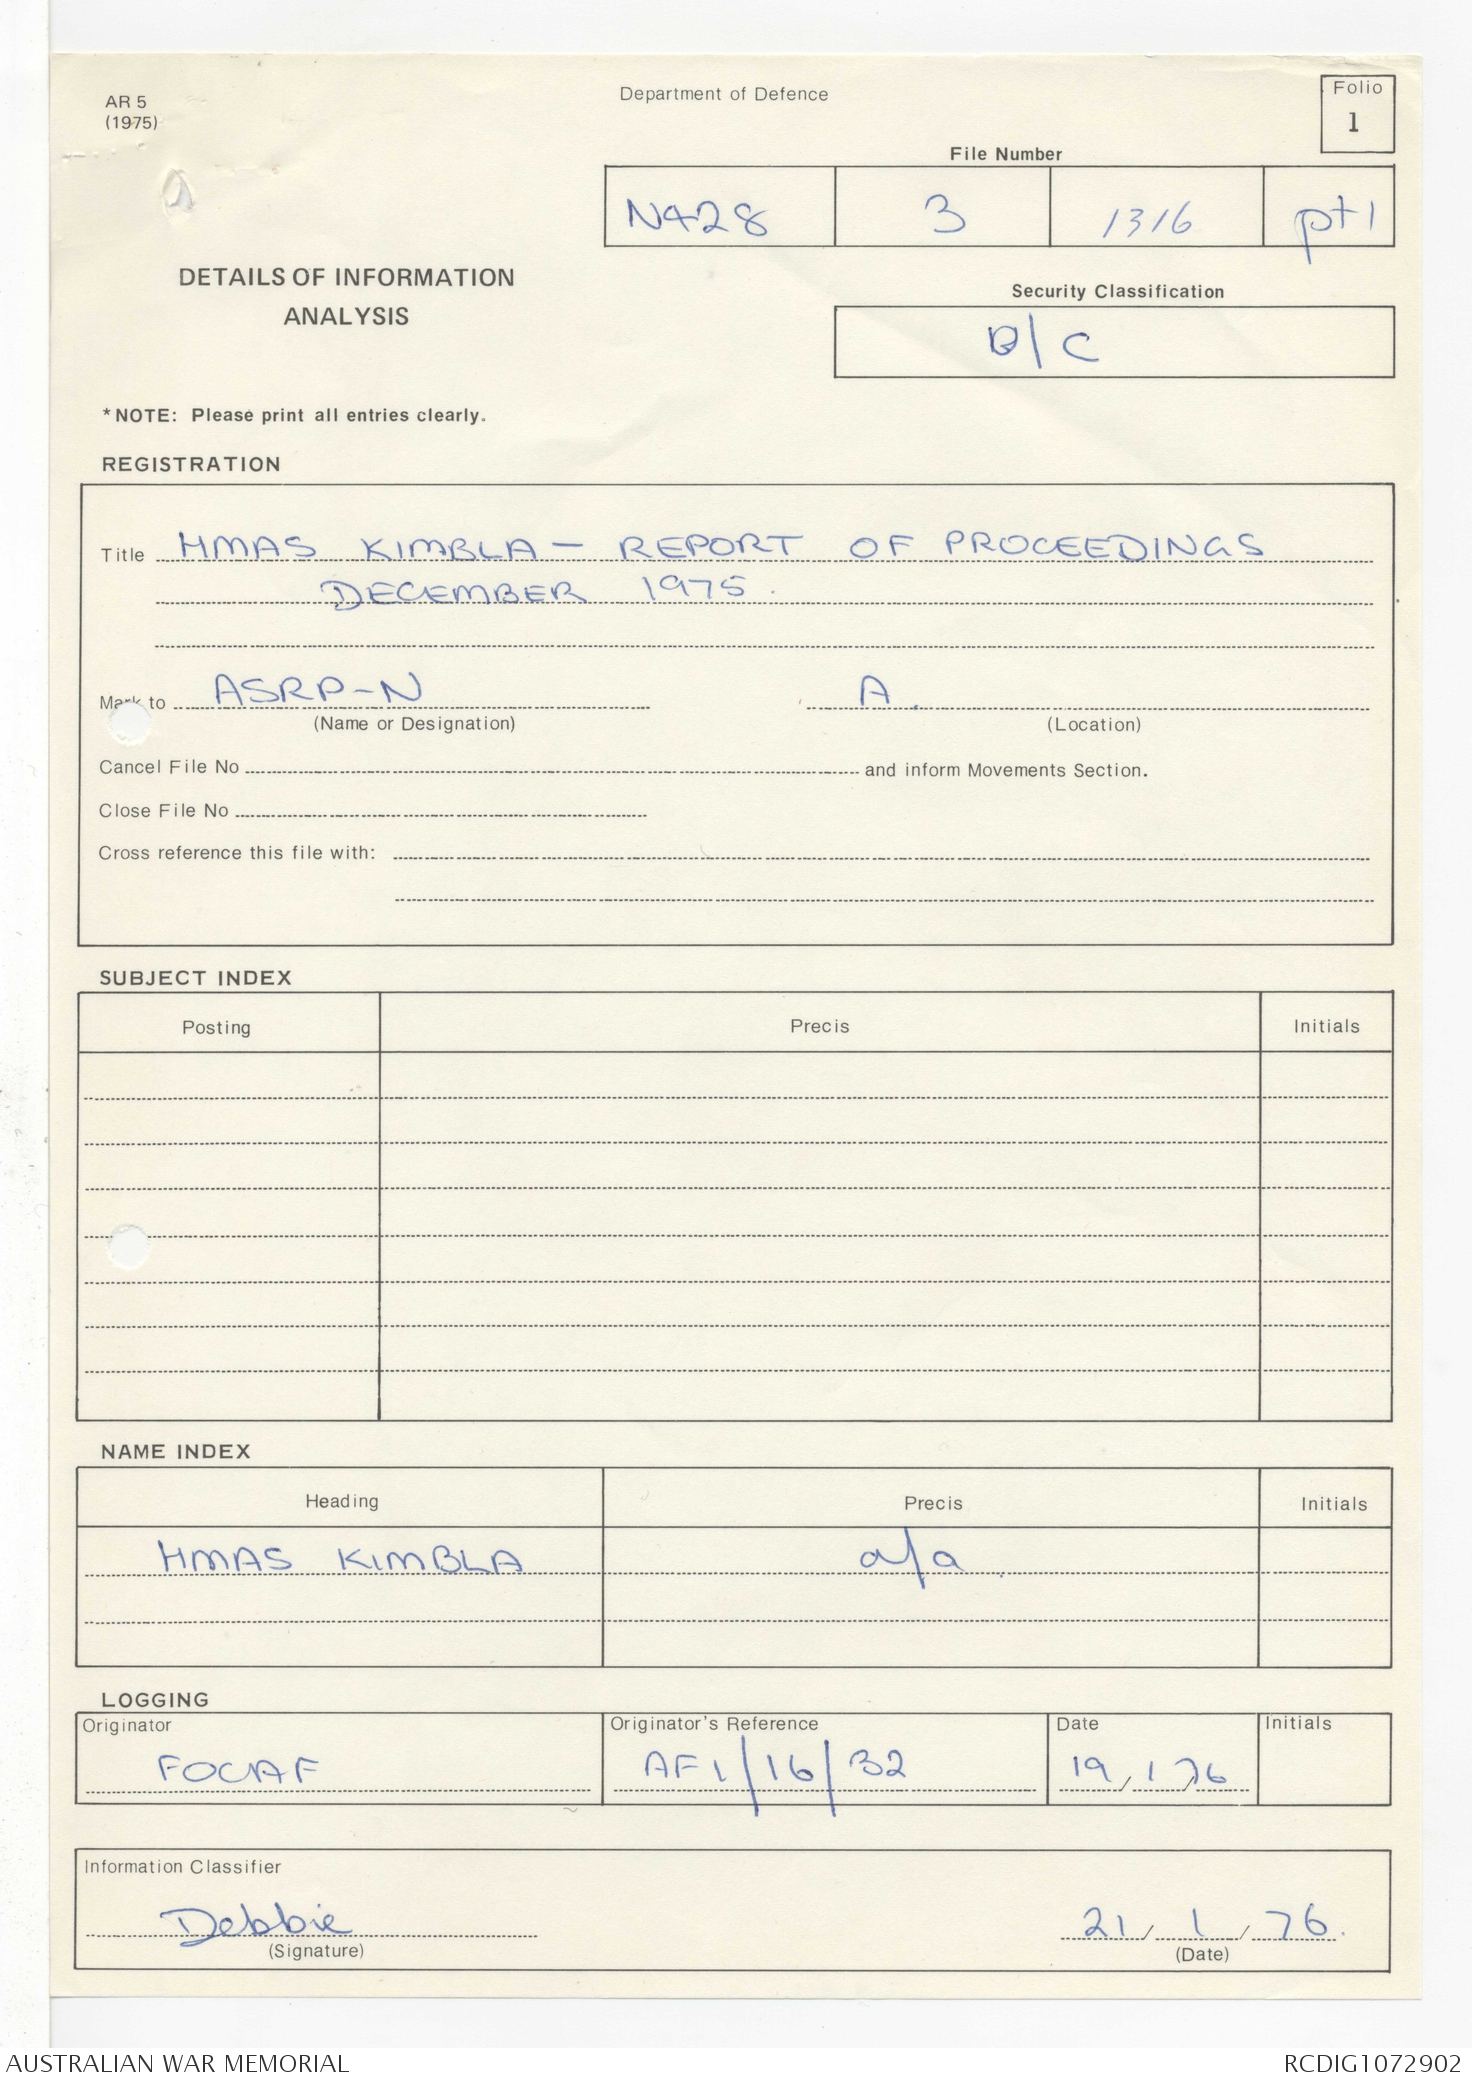 AR 5
(1975)
Department of Defence
Folio
1
File Number
N428 3 1316 pt 1
DETAILS OF INFORMATION
ANALYSIS
Security Classification
/ C
*NOTE: Please print all entries clearly.
REGISTRATION
Title HMAS KIMBLA - REPORT OF PROCEEDINGS
DECEMBER 1975.
Mark to ASRP-N A.
(Name or Designation) (Location)
Cancel File No and inform Movements Section.
Close File No
Cross reference this file with:
SUBJECT INDEX
Posting Precis Initials
NAME INDEX
Heading Precis Initials
HMAS KIMBLA a/a.
LOGGING
Originator Originator's Reference Date Initials
FOCAF AF1/16/32 19/1/76
Information Classifier
Debbie 21/1/76.
(Signature) (Date)
AUSTRALIAN WAR MEMORIAL RCDIG1072902